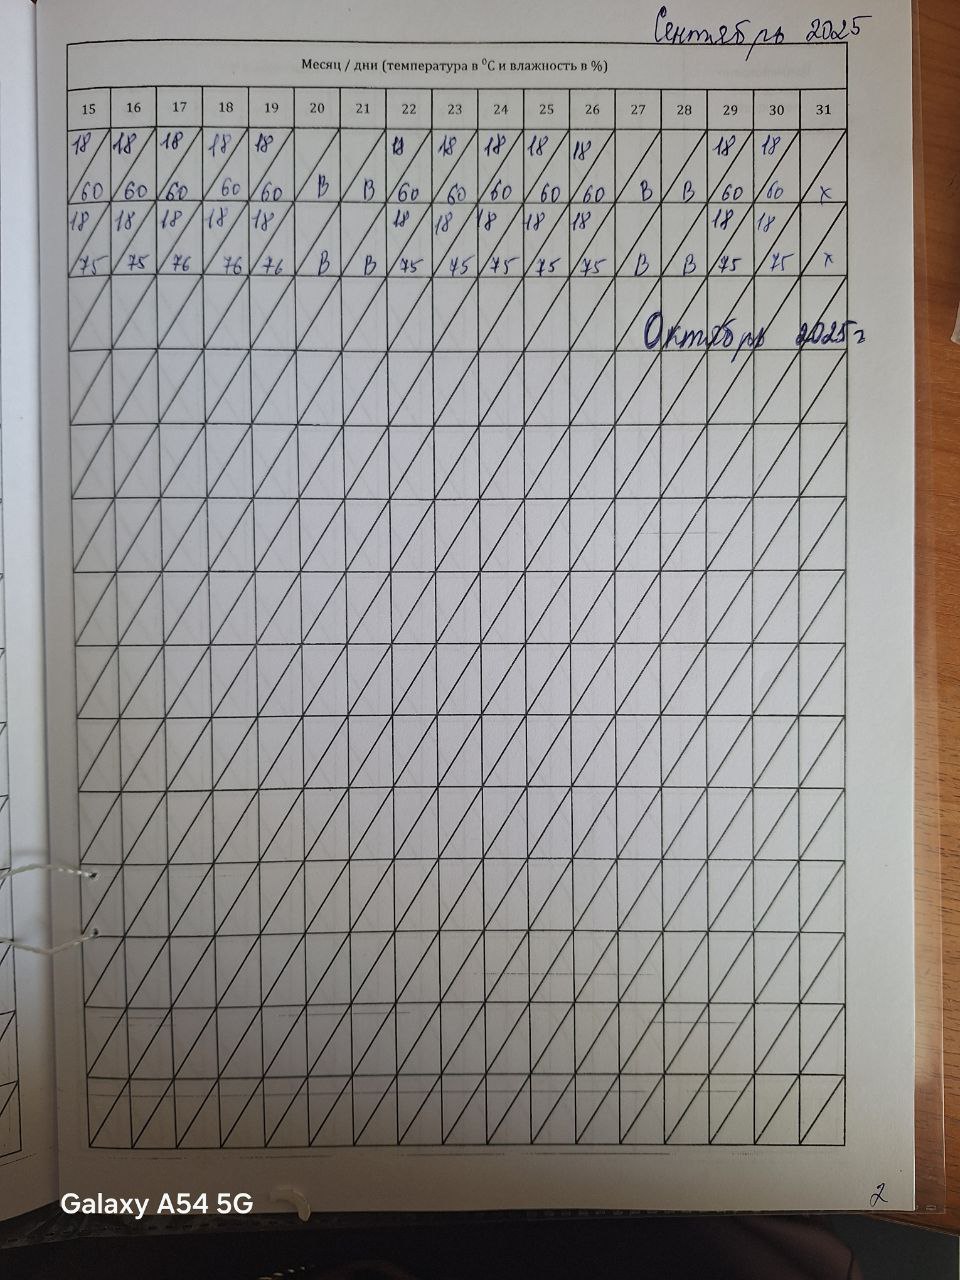 Сентябрь 2025
Месяц / дни (температура в ⁰С и влажность в %)
15 16 17 18 19 20 21 22 23 24 25 26 27 28 29 30 31
18 18 18 18 18 18 18 18 18 18 18 18
60 60 60 60 60 В В 60 60 60 60 60 В В 60 60 х
18 18 18 18 18 18 18 18 18 18 18 18
75 75 76 76 76 В В 75 75 75 75 75 В В 75 75 х
Октябрь 2025г
Galaxy A54 5G
2